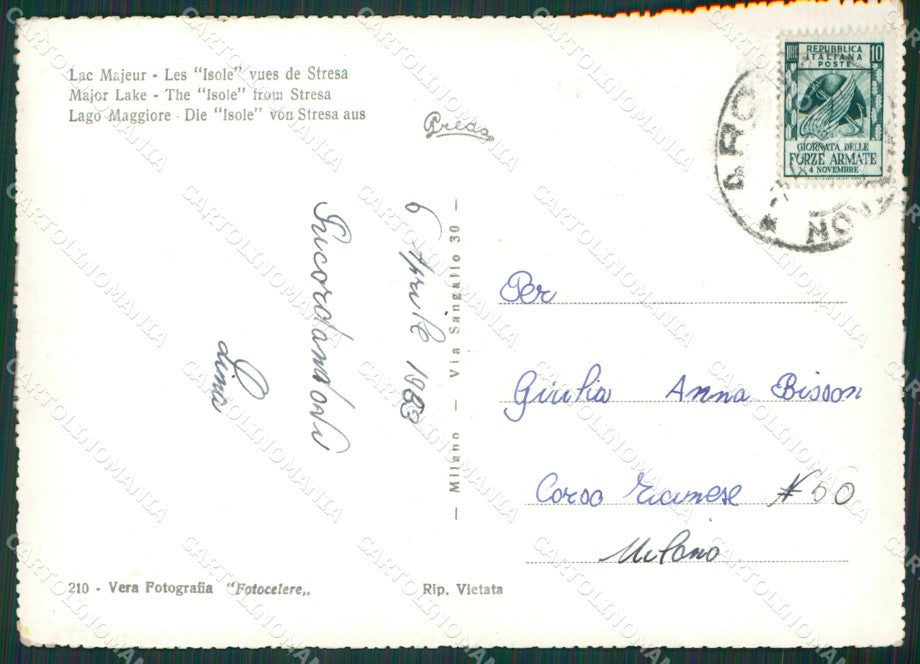 Lac Majeur - Les "Isole" vues de Stresa
Major Lake - The "Isole" from Stresa
Lago Maggiore - Die "Isole" von Stresa aus
Preda
REPUBBLICA
ITALIANA
POSTE
10
GIORNATA DELLE
FORZE ARMATE
4 NOVEMBRE
6 Aprile 1953
Ricordandovi
Lina
— Milano — Via Sangallo 30 —
Per
Giulia Anna Bisson
Corso N 50
Milano
210 - Vera Fotografia "Fotocelere„
Rip. Vietata
CARTOLINOMANIA